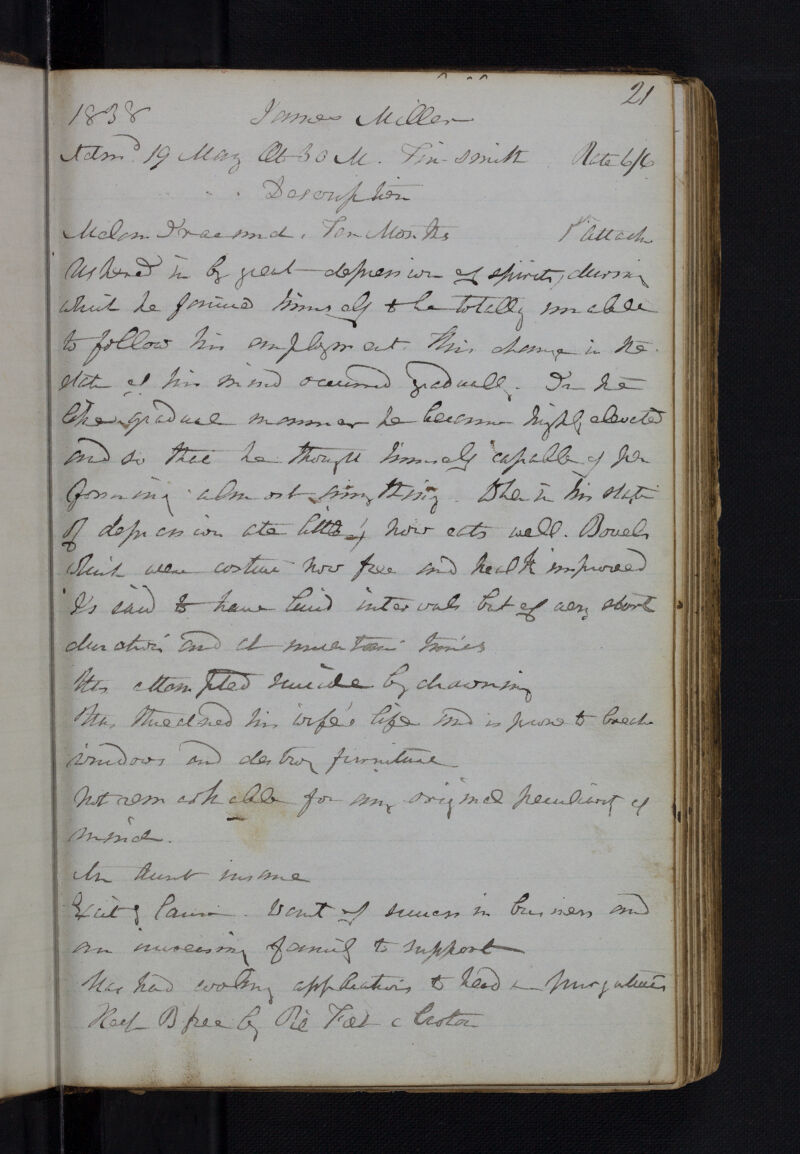 21
1838 James Miller
Admd 19 May Æt 30 M. Tin-smith Rate 6/6
Description
Melan. Ten Months 1st attack
Ushered in by great depression of spirits, during
which he fancied himself to be totally unable
to follow his employment. This change in the
state of his mind occurred gradually. In the
like gradual manner he became highly elevated
and so that he thought himself capable of per
forming almost any thing. When in his state
of depression ate little, now eats well. Bowels
which were costive now free and health improved
Is said to have lucid intervals but of very short
duration and at uncertain times
Has attempted suicide by drowning
Has threatened his wife's life and is prone to break
windows and destroy furniture
Not remarkable for any original peculiarity of
mind.
An Aunt insane
Excitg Cause. Want of success in business and
an increasing family to support
Has had cooling applications to head & purgatives
Keep B free by Pil c Croton